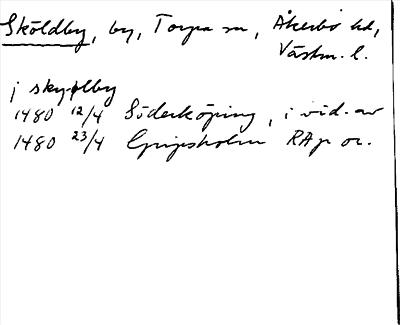 Sköldby, by, Torpa sn, Åkerbo hd,
Västm. l.
j skyölby
1480 12/4 Söderköping, i vid. av
1480 23/4 Gripsholm RAp or.